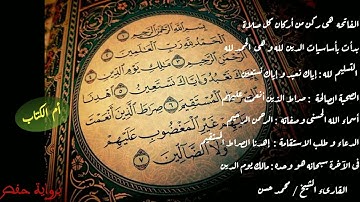 الفاتحة هى ركن من أركان كل صلاة
بدأت بأساسيات الدين لله و هى الحمد لله
التسليم لله : إياك نعبد و إياك نستعين
الصحبة الصالحة : صراط الذين أنعمت عليهم
أسماء الله الحسنى و صفاته : الرحمن الرحيم
الدعاء و طلب الاستقامة : إهدنا الصراط المستقيم
فى الآخرة سبحانه هو وحده : مالك يوم الدين
القارىء الشيخ / محمد حسن
أم الكتاب
برواية حفص
بِسْمِ اللَّهِ الرَّحْمَنِ الرَّحِيمِ
الْحَمْدُ لِلَّهِ رَبِّ الْعَالَمِينَ
الرَّحْمَنِ الرَّحِيمِ مَالِكِ يَوْمِ الدِّينِ
إِيَّاكَ نَعْبُدُ وَإِيَّاكَ نَسْتَعِينُ اهْدِنَا
الصِّرَاطَ الْمُسْتَقِيمَ صِرَاطَ الَّذِينَ أَنْعَمْتَ
عَلَيْهِمْ غَيْرِ الْمَغْضُوبِ عَلَيْهِمْ
وَلَا الضَّالِّينَ ٧